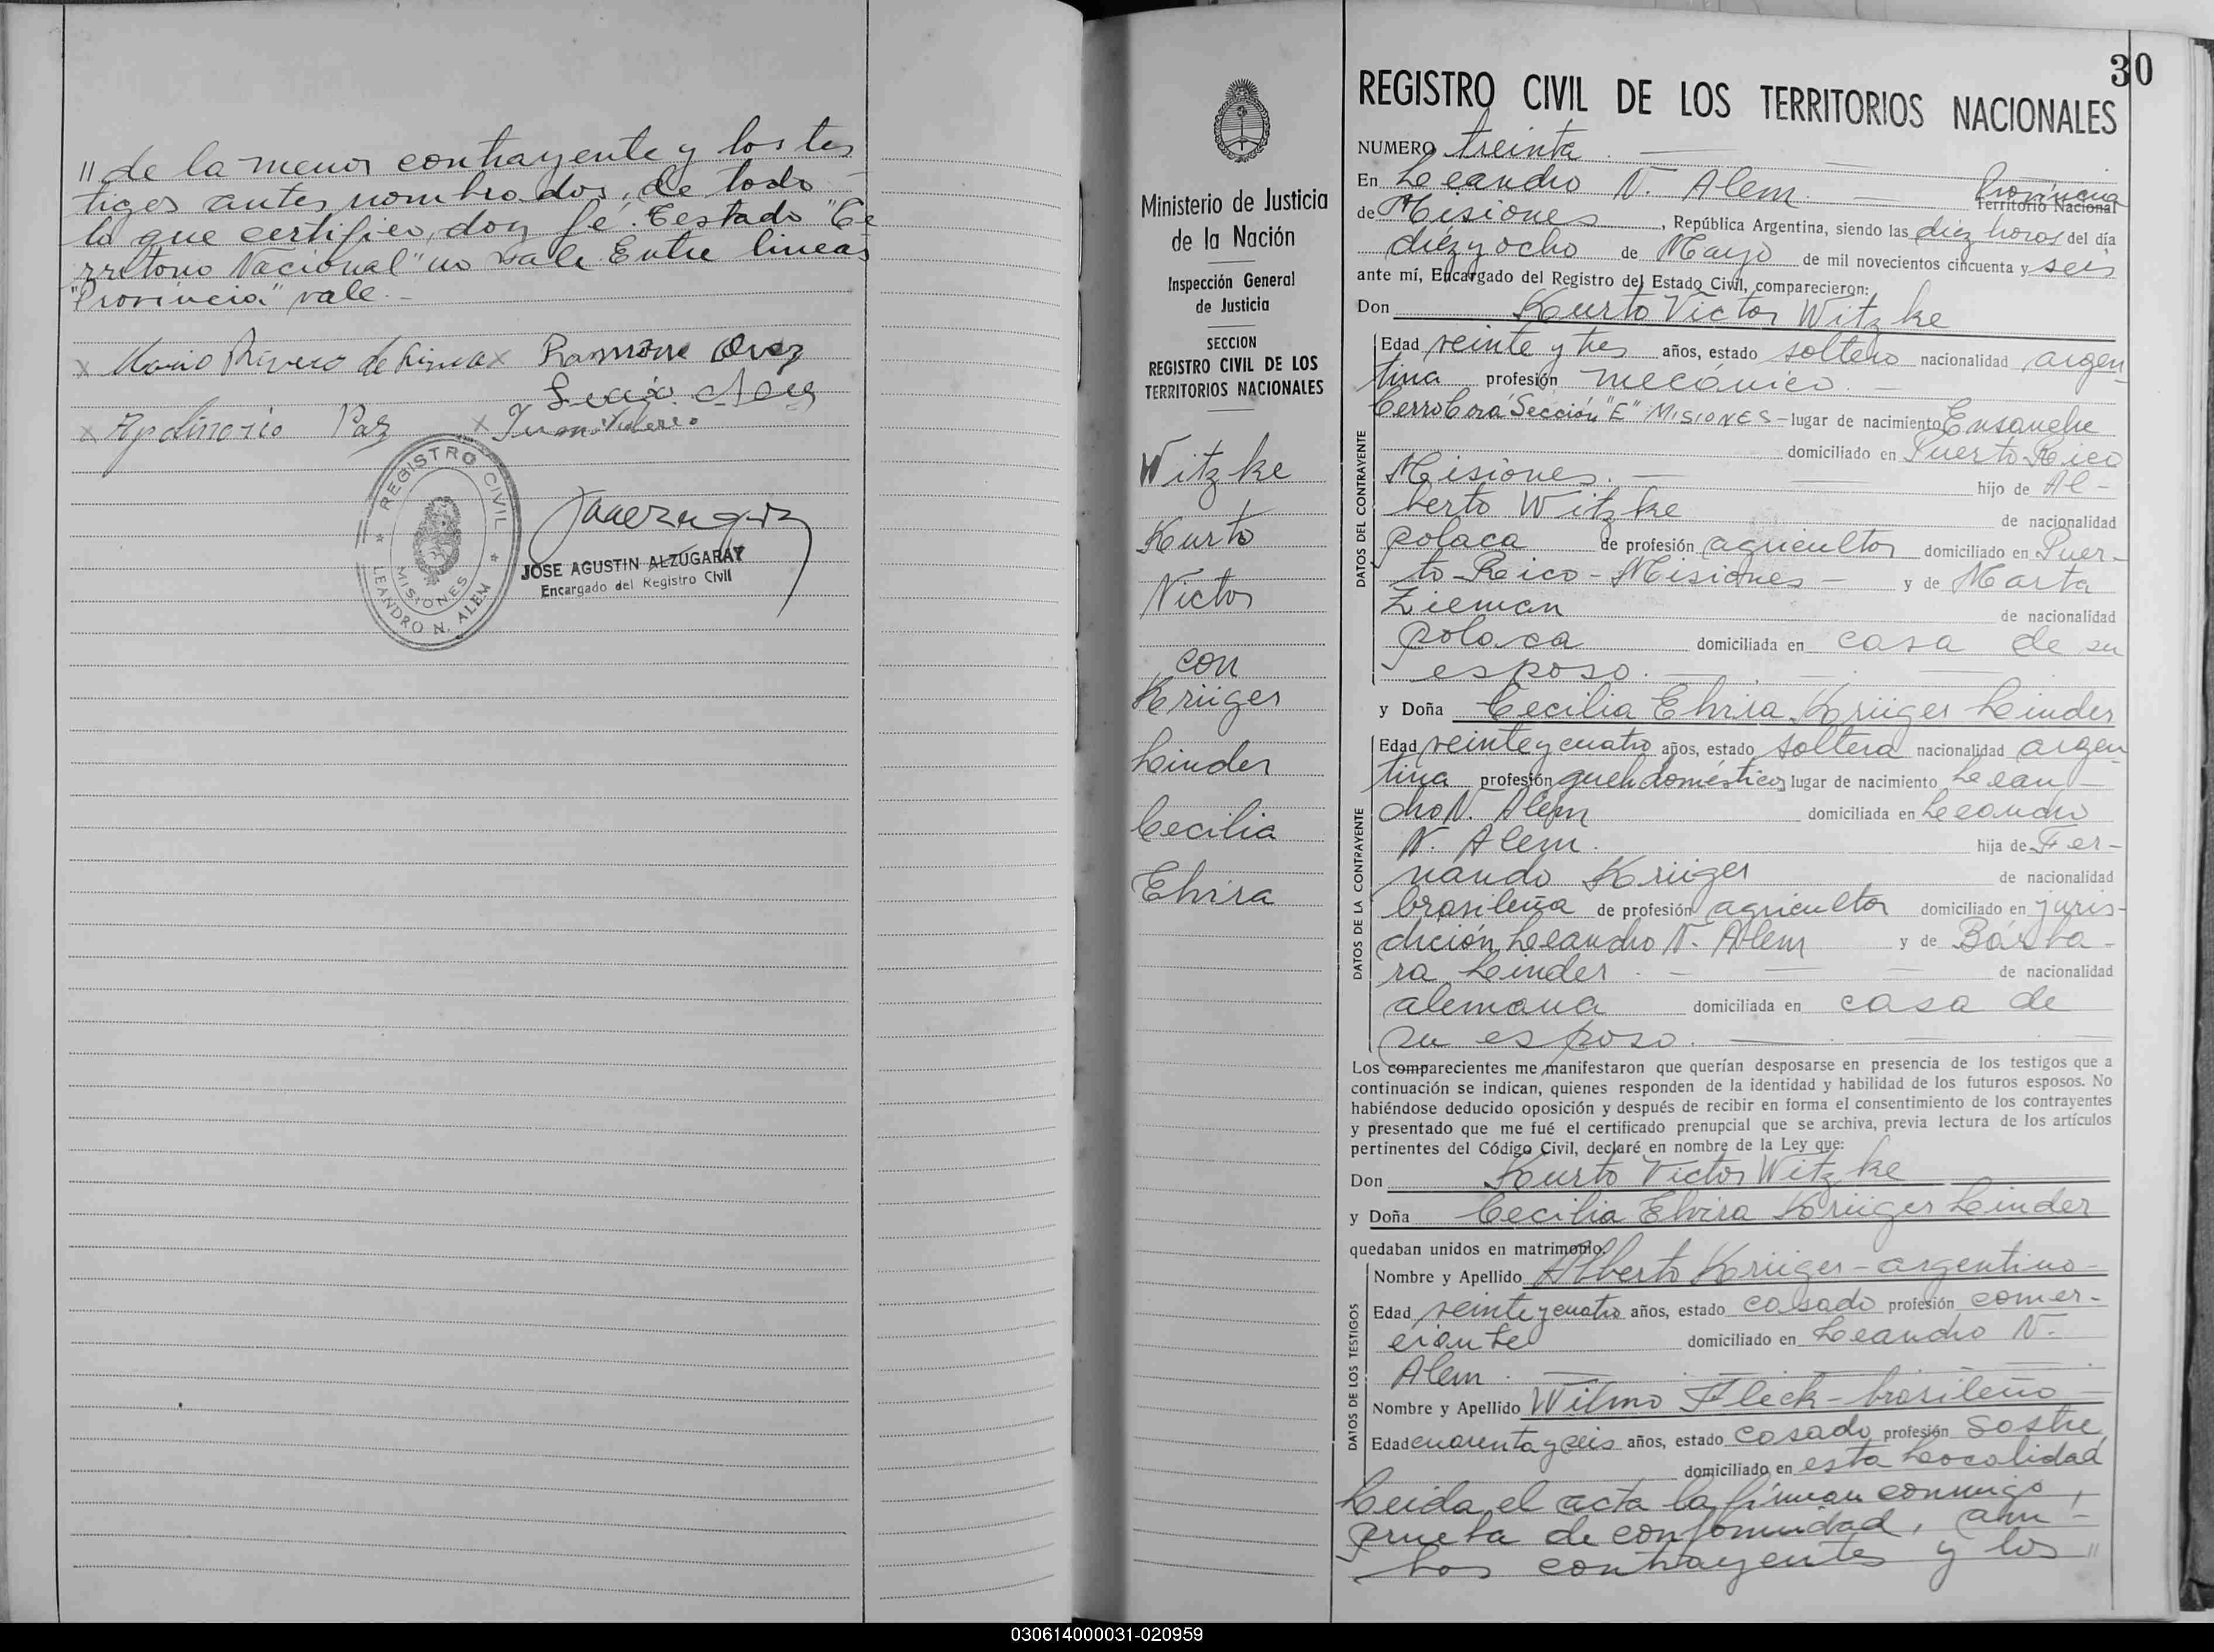 "de la menor contrayente y los tes
tigos antes nombrados, de todo
lo que certifico, doy fé. Testado "Te
rritorio Nacional" no vale. Entre lineas
"Provincia" vale.-
x Ramona
x Apolinario Paz x
REGISTRO CIVIL
MISIONES
LEANDRO N. ALEM
JOSE AGUSTIN ALZUGARAY
Encargado del Registro Civil
Ministerio de Justicia
de la Nación
Inspección General
de Justicia
SECCION
REGISTRO CIVIL DE LOS
TERRITORIOS NACIONALES
Witzke
Kurto
Victor
con
Krüger
Linder
Cecilia
Elvira
30
REGISTRO CIVIL DE LOS TERRITORIOS NACIONALES
NUMERO treinta.
En Leandro N. Alem. Provincia
Territorio Nacional
de Misiones, República Argentina, siendo las diez horas del día
diez y ocho de Mayo de mil novecientos cincuenta y seis
ante mí, Encargado del Registro del Estado Civil, comparecieron:
Don Kurto Victor Witzke
DATOS DEL CONTRAYENTE
Edad veinte y tres años, estado soltero nacionalidad argen-
tina profesión mecánico.
Cerro Corá Sección "E" MISIONES - lugar de nacimiento Ensanche
domiciliado en Puerto Rico
Misiones. hijo de Al-
berto Witzke de nacionalidad
polaca de profesión agricultor domiciliado en Puer-
to Rico - Misiones - y de Marta
Zieman de nacionalidad
polaca domiciliada en casa de su
esposo.
y Doña Cecilia Elvira Krüger Linder
DATOS DE LA CONTRAYENTE
Edad veinte y cuatro años, estado soltera nacionalidad argen
tina profesión queh. domésticos lugar de nacimiento Lean-
dro N. Alem domiciliada en Leandro
N. Alem. hija de Fer-
nando Krüger de nacionalidad
brasileña de profesión agricultor domiciliado en juris-
dicción Leandro N. Alem y de Bárba-
ra Linder. de nacionalidad
alemana domiciliada en casa de
su esposo.
Los comparecientes me manifestaron que querían desposarse en presencia de los testigos que a
continuación se indican, quienes responden de la identidad y habilidad de los futuros esposos. No
habiéndose deducido oposición y después de recibir en forma el consentimiento de los contrayentes
y presentado que me fué el certificado prenupcial que se archiva, previa lectura de los artículos
pertinentes del Código Civil, declaré en nombre de la Ley que:
Don Kurto Victor Witzke
y Doña Cecilia Elvira Krüger Linder
quedaban unidos en matrimonio.
DATOS DE LOS TESTIGOS
Nombre y Apellido Alberto Krüger - argentino -
Edad veinte y cuatro años, estado casado profesión comer-
ciante domiciliado en Leandro N.
Alem.
Nombre y Apellido Wilmo Fleck - brasileño
Edad cuarenta y seis años, estado casado profesión Sastre
domiciliado en esta Localidad
Leida el acta la firman conmigo,
prueba de conformidad, am-
bos contrayentes y los "
030614000031-020959